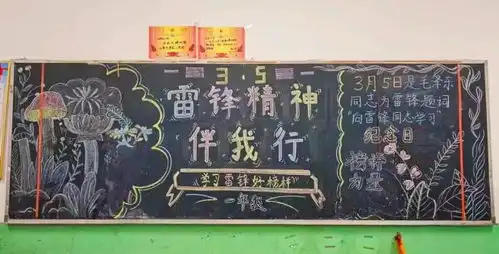 3.5
雷锋精神
伴我行
学习雷锋好榜样
一年级
3月5日是毛泽东
同志为雷锋题词
"向雷锋同志学习"
纪念日
榜样
力量